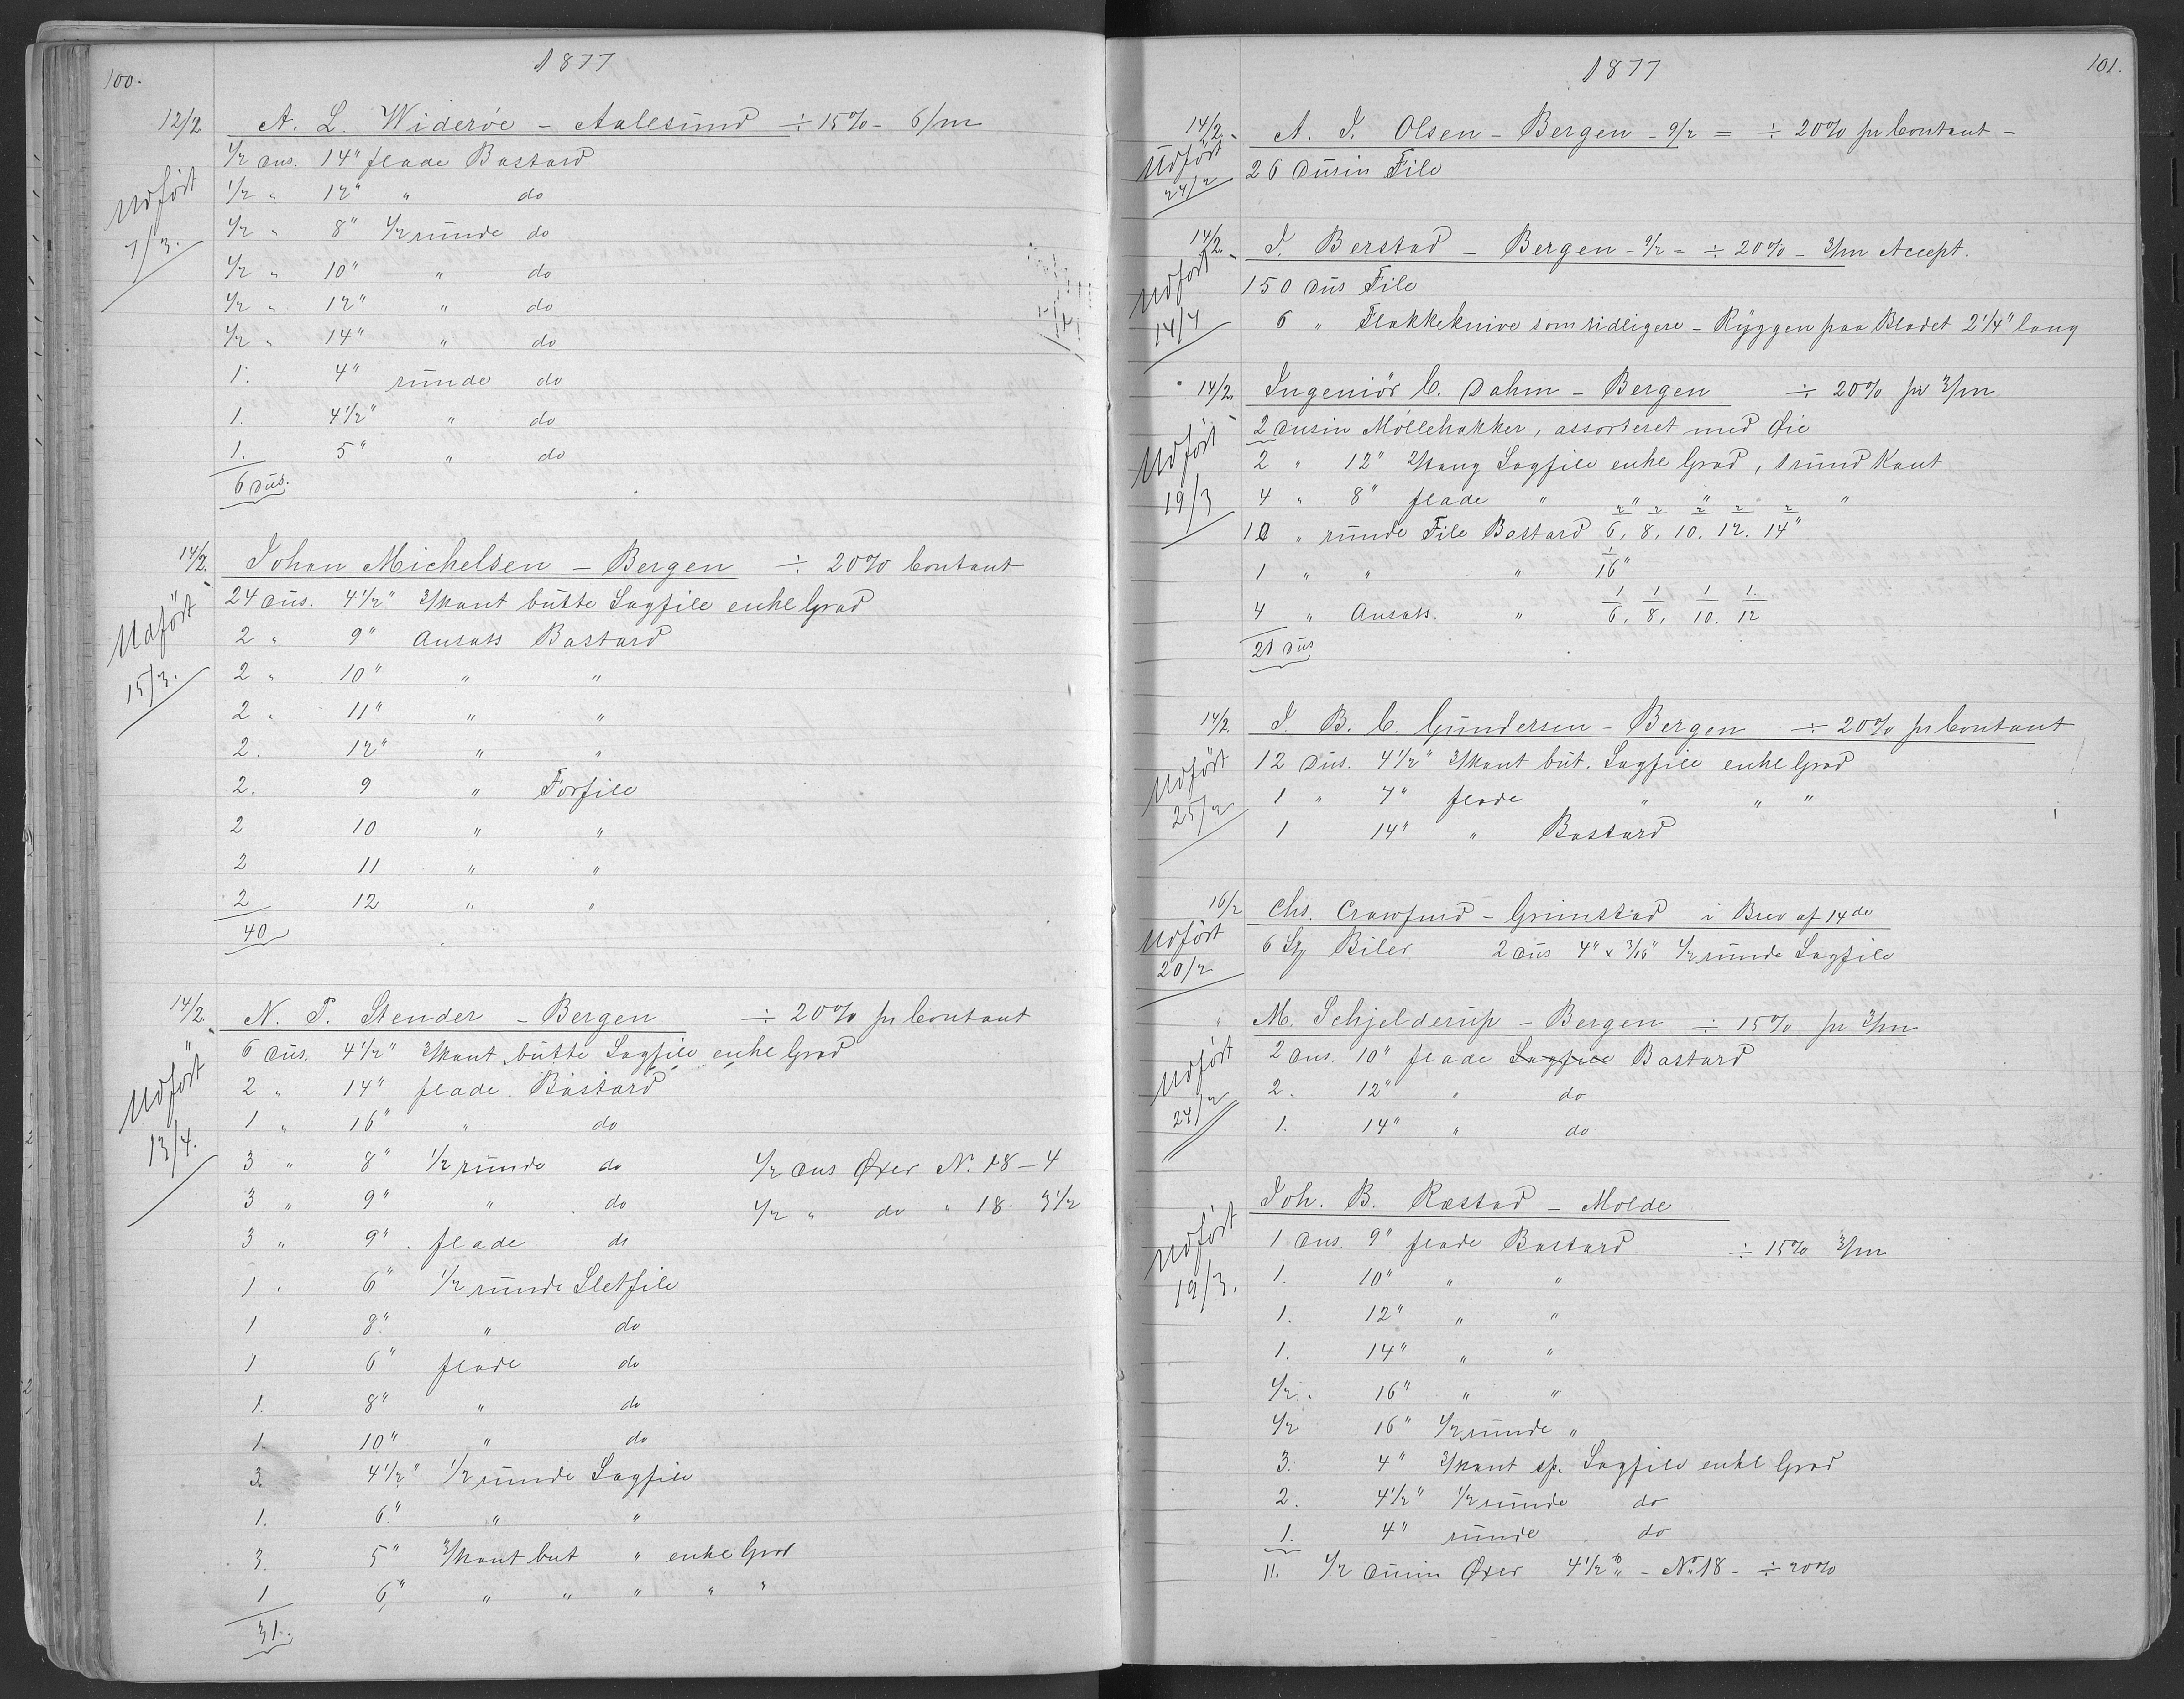 100.
1877
12/2 A. L. Widerøe - Aalesund ÷ 15% - 6/m
Udført 7/3.
1/2 dus. 14" flade Bastard
1/2 " 12" " do
1/2 " 8" 1/2 runde do
1/2 " 10" " do
1/2 " 12" " do
1/2 " 14" " do
1. 4" runde do
1. 4 1/2" " do
1. 5" " do
6 Dus.
14/2. Johan Michelsen - Bergen ÷ 20% Contant
Udført 15/3.
24 dus. 4 1/2" 3/kant butte Sagfile enkl Grad
2 " 9" Ansats Bastard
2 " 10" " "
2 " 11" " "
2. 12" " "
2. 9 " Forfile
2 10 " "
2 11 " "
2 12 " "
40
14/2. N. P. Stender - Bergen ÷ 20% pr Contant
Udført 13/4.
6 dus. 4 1/2" 3/kant butte Sagfile enkl Grad
2 " 14" flade Bastard
1 " 16" " do
3 " 8" 1/2 runde do 1/2 dus Øxer N. 18 - 4
3 " 9" " do 1/2 " do " 18 3 1/2
3 " 9" flade do
1 " 6" 1/2 runde Sletfile
1 8" " do
1 6" flade do
1. 8" " do
1. 10" " do
3. 4 1/2" 1/2 runde Sagfile
1. 6" " "
3. 5" 3/kant but " enkl Grad
1 6" " " " " "
31.
101.
1877
14/2. A. J. Olsen - Bergen - 9/2 = ÷ 20% pr Contant -
Udført 24/2
26 Dusin File
14/2. J. Berstad - Bergen - 9/2 - ÷ 20% - 3/m Accept.
Udført 14/4
150 dus File
6 " Flakkeknive som tidligere - Ryggen paa Bladet 2 1/4" lang
14/2. Ingeniør C. Dahm - Bergen ÷ 20% pr 3/m
Udført 19/3
2 dusin Møllehakker, assorteret med Øie
2 " 12" 2/kang Sagfile enkl Grad, 1 rund Kant
4 " 8" flade " " " "
2 2 2 2 2
10 " runde File Bastard 6, 8, 10. 12. 14"
1
1 " " " 16"
1 1 1 1.
4 " Ansats. " 6, 8, 10. 12
21 Dus
14/2. J. B. C. Gundersen - Bergen ÷ 20% pr Contant
Udført 25/2
12 Dus. 4 1/2" 3/kant but. Sagfile enkl Grad
1 " 7" flade " " "
1 14" " Bastard
16/2 Chs. Crawfurd - Grimstad i Brev af 14de
Udført 20/2
6 St Biler 2 dus 4" x 3/16" 1/2 runde Sagfile
M. Schjelderup - Bergen ÷ 15% pr 3/m
Udført 24/2
2 dus. 10" flade Sagfile Bastard
2. 12" " do
1. 14" " do
Joh. B. Ræstad - Molde
Udført 19/3.
1 dus. 9" flade Bastard ÷ 15% 3/m
1. 10" " "
1. 12" " "
1. 14" " "
1/2. 16" " "
1/2 16" 1/2 runde "
3. 4" 3/kant sp. Sagfile enkl Grad
2. 4 1/2" 1/2 runde do
1. 4" runde do
11. 1/2 dusin Øxer 4 1/2 lb - No 18 - ÷ 20%